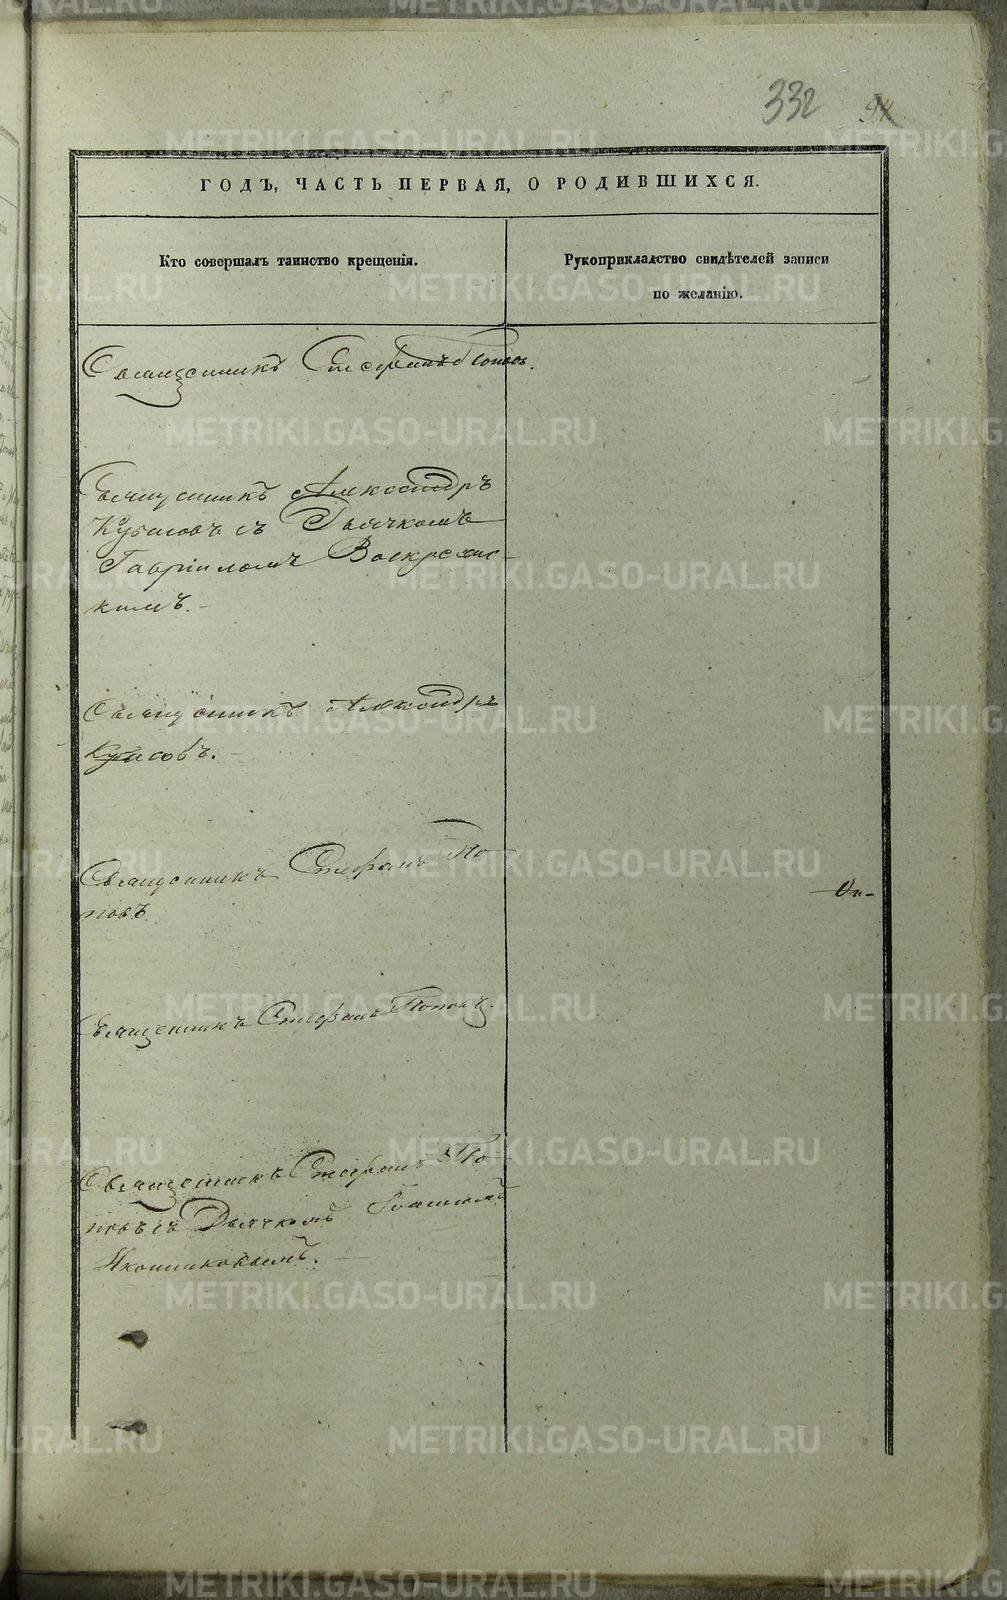 332 94
ГОДЪ, ЧАСТЬ ПЕРВАЯ, О РОДИВШИХСЯ.
Кто совершалъ таинство крещенія.
Рукоприкладство свидѣтелей записи
по желанію.
Священникъ Стефанъ Поповъ.
Священникъ Александръ
съ Дьячкомъ
Гавріиломъ Воскресенс-
кимъ.-
Священникъ Александръ
Священникъ Стефанъ По
повъ.
Священникъ Стефанъ Поповъ.
Священникъ Стефанъ По
повъ съ Дьячкомъ Іоанномъ
Иконниковымъ.
METRIKI.GASO-URAL.RU